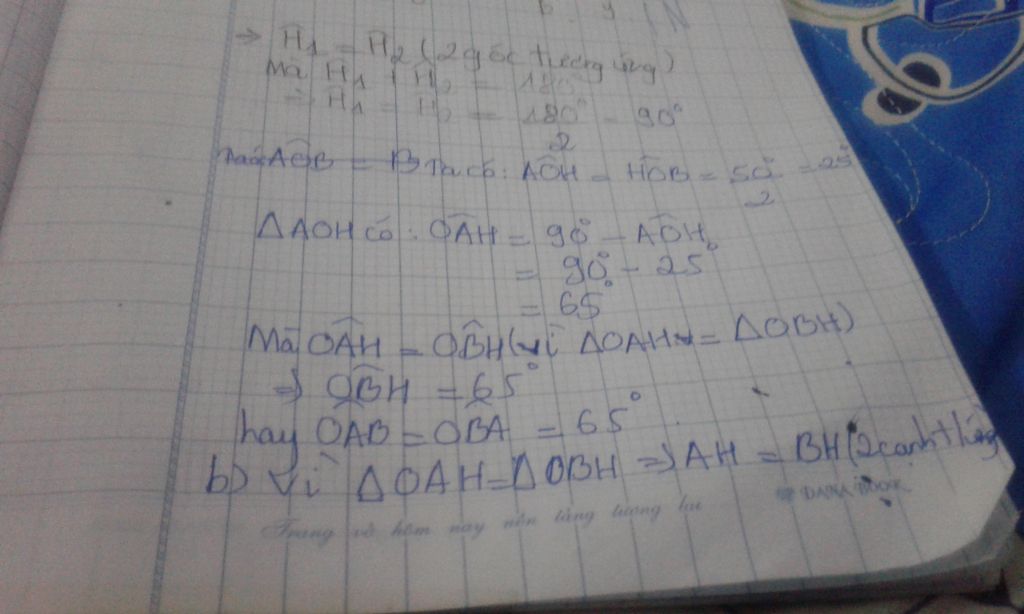 ⇒ Ĥ1 = Ĥ2 (2 góc tương ứng)
Mà Ĥ1 + Ĥ2 = 180°
⇒ Ĥ1 = Ĥ2 = 180°/2 = 90°
AÔB = Ta có: AÔH = HÔB = 50°/2 = 25°
ΔAOH có: OÂH = 90° - AÔH
= 90° - 25°
= 65°
Mà OÂH = OB̂H (vì ΔOAH = ΔOBH)
⇒ OB̂H = 65°
hay OÂB = OB̂A = 65°
b) Vì ΔOAH = ΔOBH ⇒ AH = BH (2 cạnh
DANA BOOK
Trang vở hôm nay nền tảng tương lai